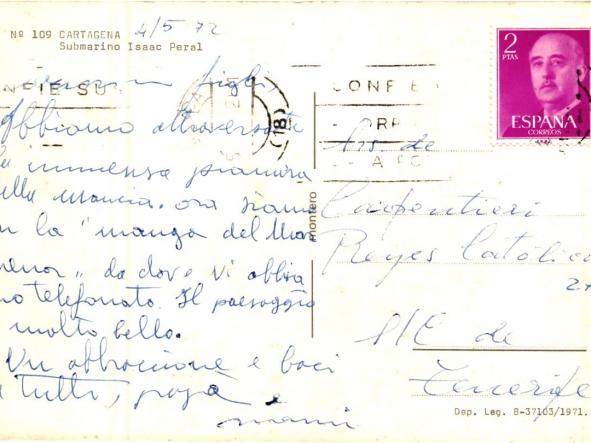 Nº 109 CARTAGENA 4/5 72
Submarino Isaac Peral
figli,
Abbiamo attraversato
la immensa pianura
della Mancia. ora siamo
in la "manga del Mar
menor" da dove vi abbia
mo telefonato. Il paesaggio
è molto bello.
Un abbraccione e baci
a tutti, papà e
mami
montero
NFIE SU
CONF E
ORR
A CO
(18)
2
PTAS
ESPAÑA
CORREOS
Srs de
Carpentieri
Reyes Católica
S/C de
Tenerife
Dep. Leg. B-37103/1971.